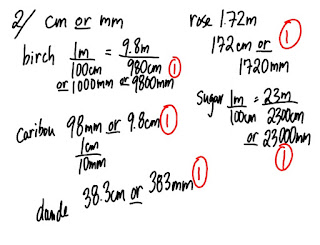 2/ cm or mm
birch 1m/100cm = 9.8m/980cm 1
or 1000mm or 9800mm
caribou 98mm or 9.8cm 1
1cm/10mm
dande 38.3cm or 383mm 1
rose 1.72m
172cm or 1
1720mm
Sugar 1m/100cm = 23m/2300cm
or 23000mm
1